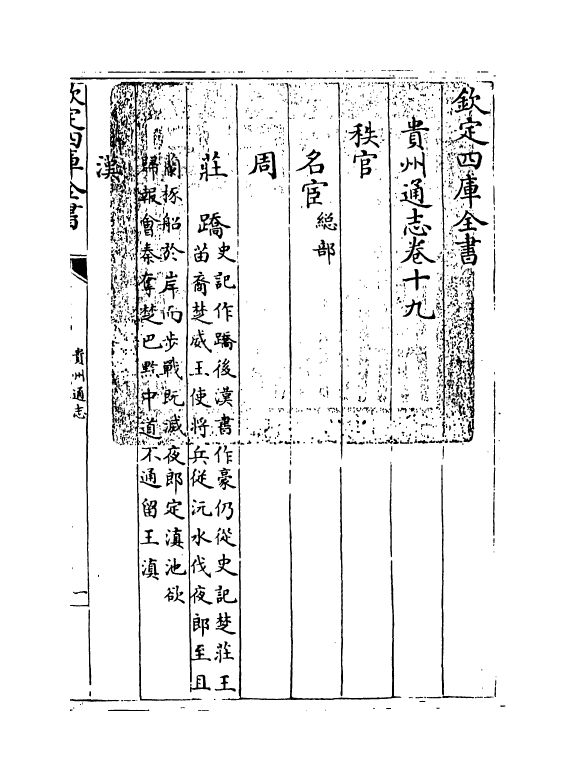 欽定四庫全書
貴州通志卷十九
秩官
名宦總部
周
莊蹻史記作蹻後漢書作豪仍從史記楚莊王
苗裔楚威王使將兵從沅水伐夜郎至且
蘭椓船於岸而步戰既滅夜郎定滇池欲
歸報會秦奪楚巴黔中道不通留王滇
漢
欽定四庫全書
貴州通志
一